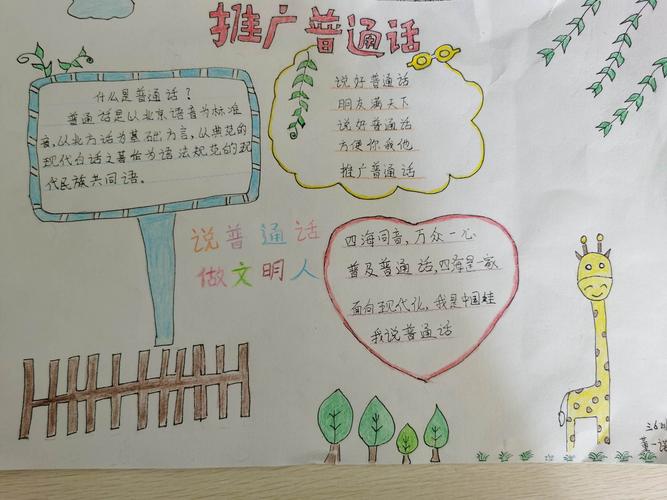 推广普通话
什么是普通话？
普通话是以北京语音为标准
音，以北方话为基础方言，以典范的
现代白话文著作为语法规范的现
代民族共同语。
说好普通话
朋友满天下
说好普通话
方便你我他
推广普通话
说普通话
做文明人
四海同音，万众一心
普及普通话，四海是一家
面向现代化，我是中国娃
我说普通话